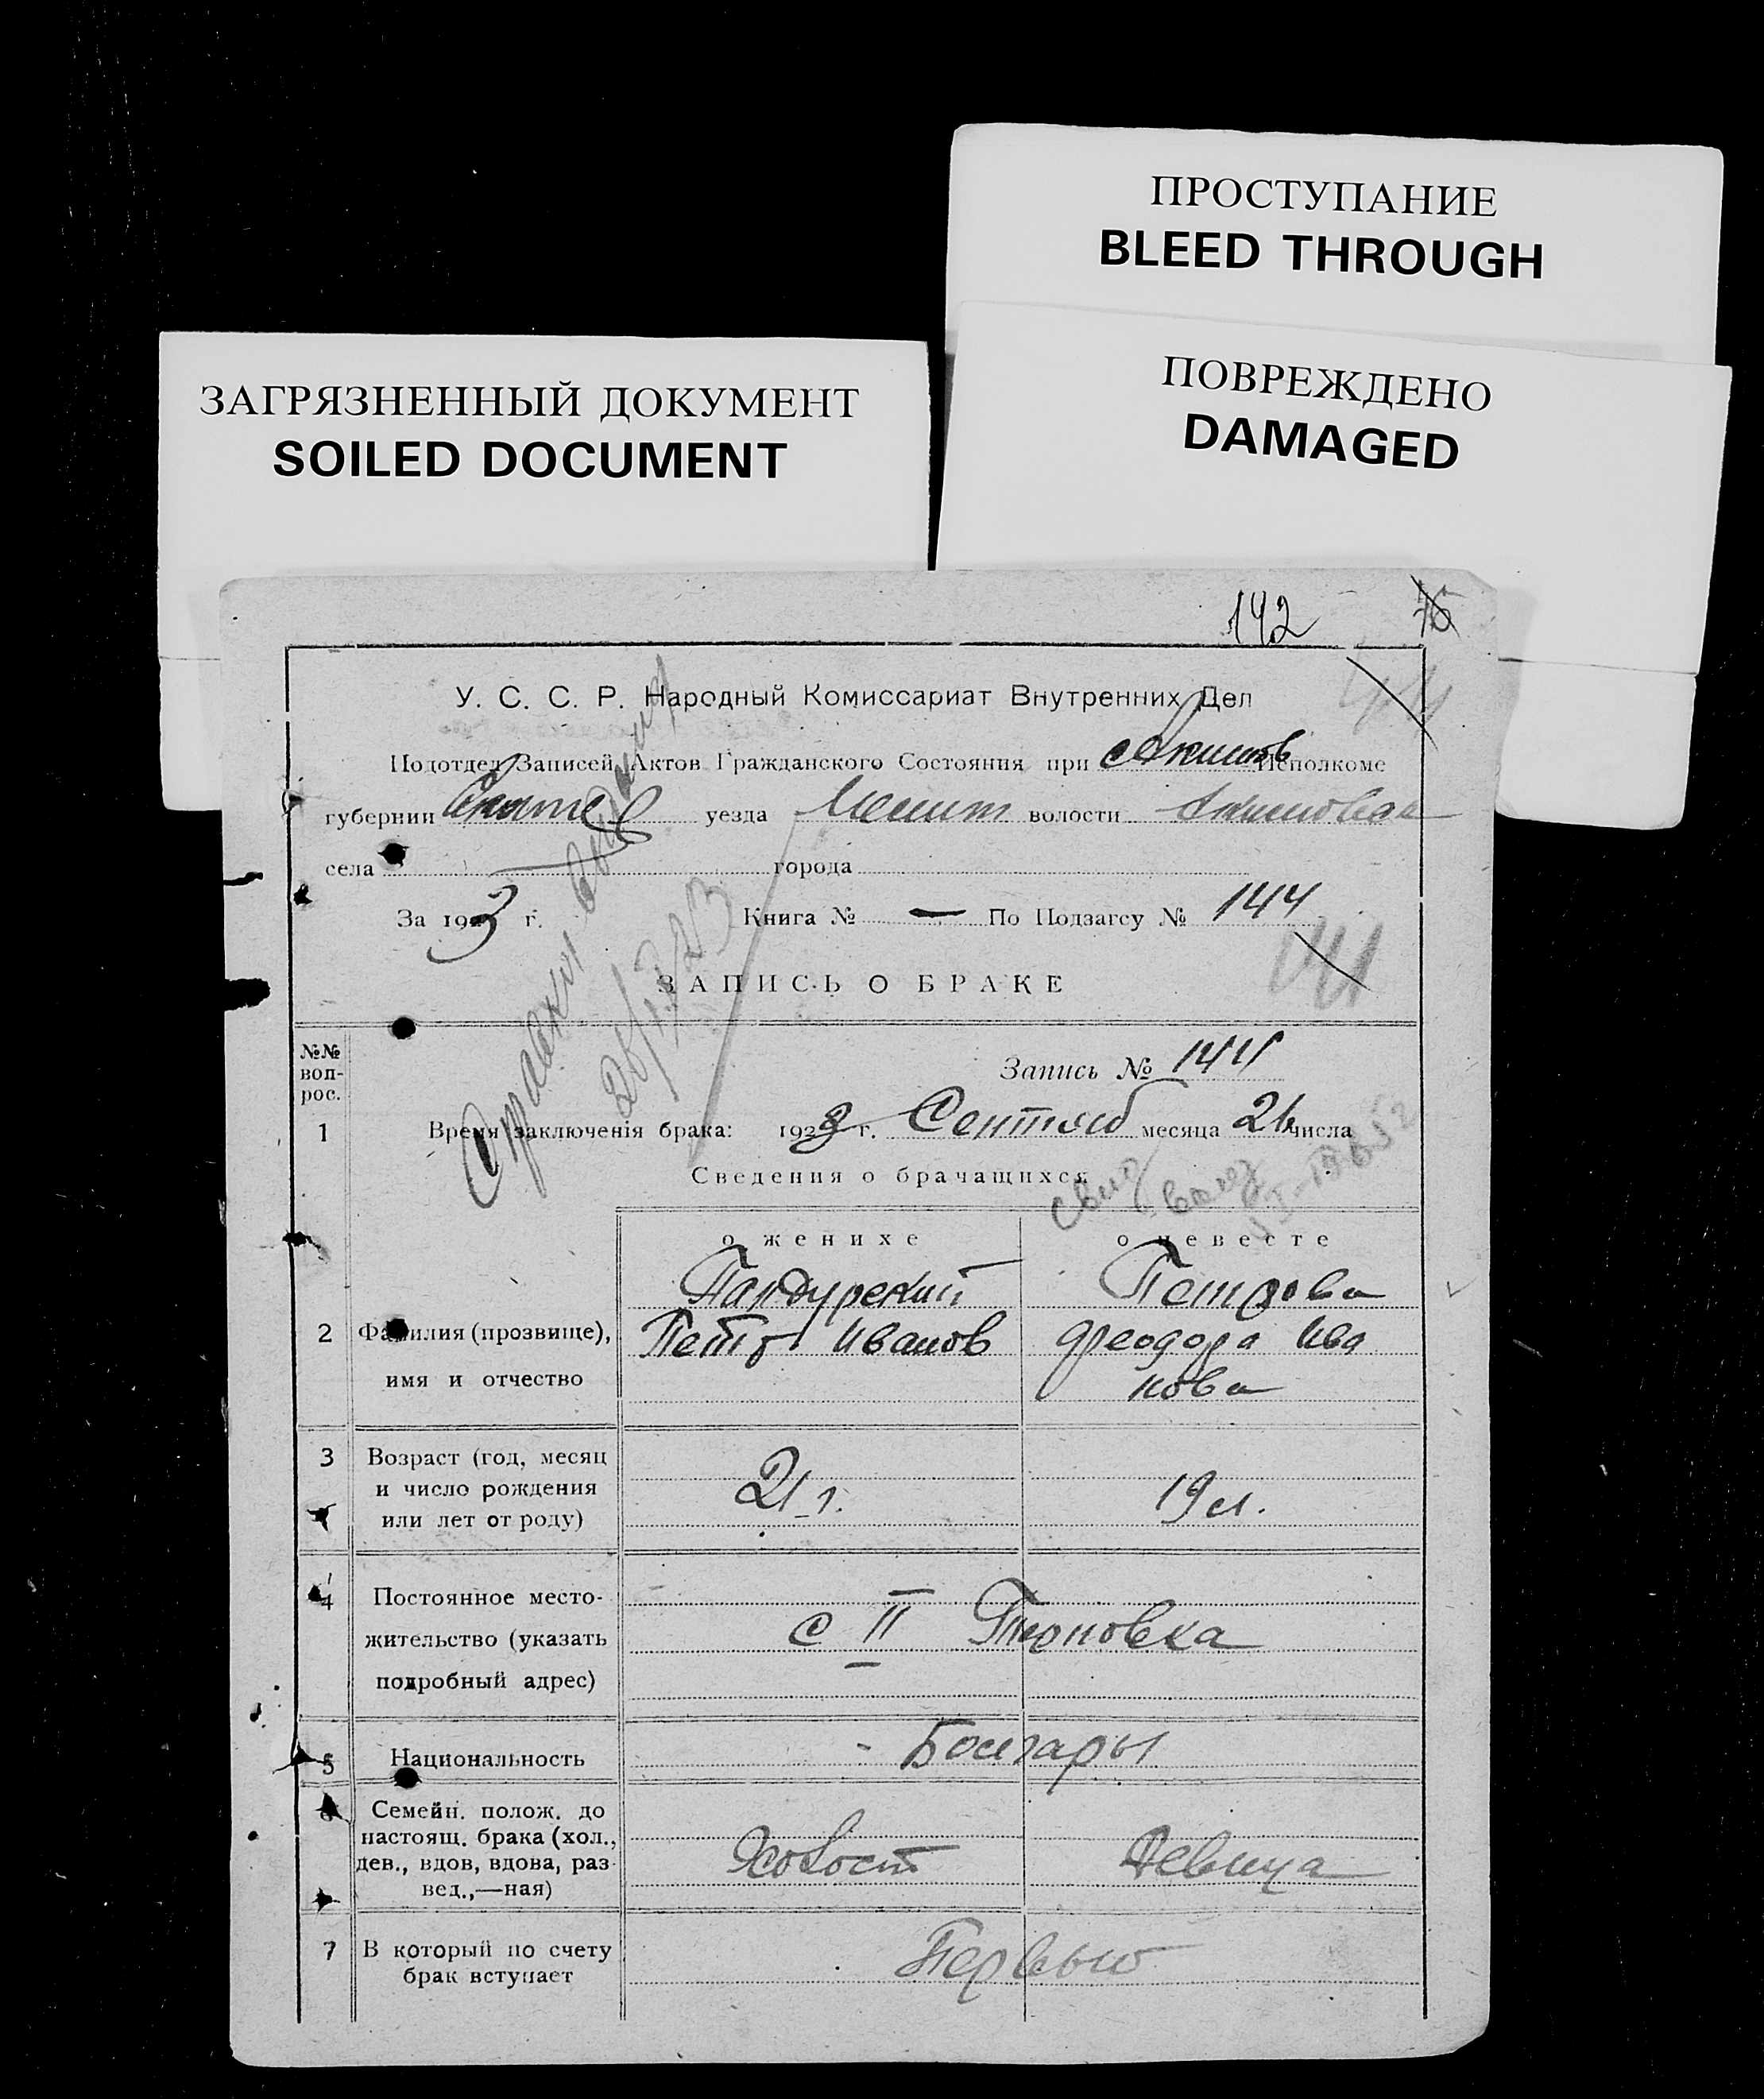 ПРОСТУПАНИЕ
BLEED THROUGH
ПОВРЕЖДЕНО
DAMAGED
ЗАГРЯЗНЕННЫЙ ДОКУМЕНТ
SOILED DOCUMENT
142
У. С. С. Р. Народный Комиссариат Внутренних Дел
Подотдел Записей Актов Гражданского Состояния при Акимов Исполкоме
губернии уезда Мелит волости Акимовская
села города
За 1923 г. Книга № — По Подзагсу № 144
141
ЗАПИСЬ О БРАКЕ
№№ воп-
рос.
Запись № 144
1 Время заключенія брака: 1923 г. Сентяб месяца 26 числа
Справки выданы
26/IX 23
Сведения о брачащихся
о женихе о невесте
Пандурский Петрова
2 Фамилия (прозвище), Петр Иванов Феодора Ива
имя и отчество нова
3 Возраст (год, месяц
и число рождения 21 г. 19 л.
или лет от роду)
4 Постоянное место-
жительство (указать с II Терновка
подробный адрес)
5 Национальность Болгары
6 Семейн. полож. до
настоящ. брака (хол.,
дев., вдов, вдова, раз- Холост Девица
вед.,—ная)
7 В который по счету Первый
брак вступает